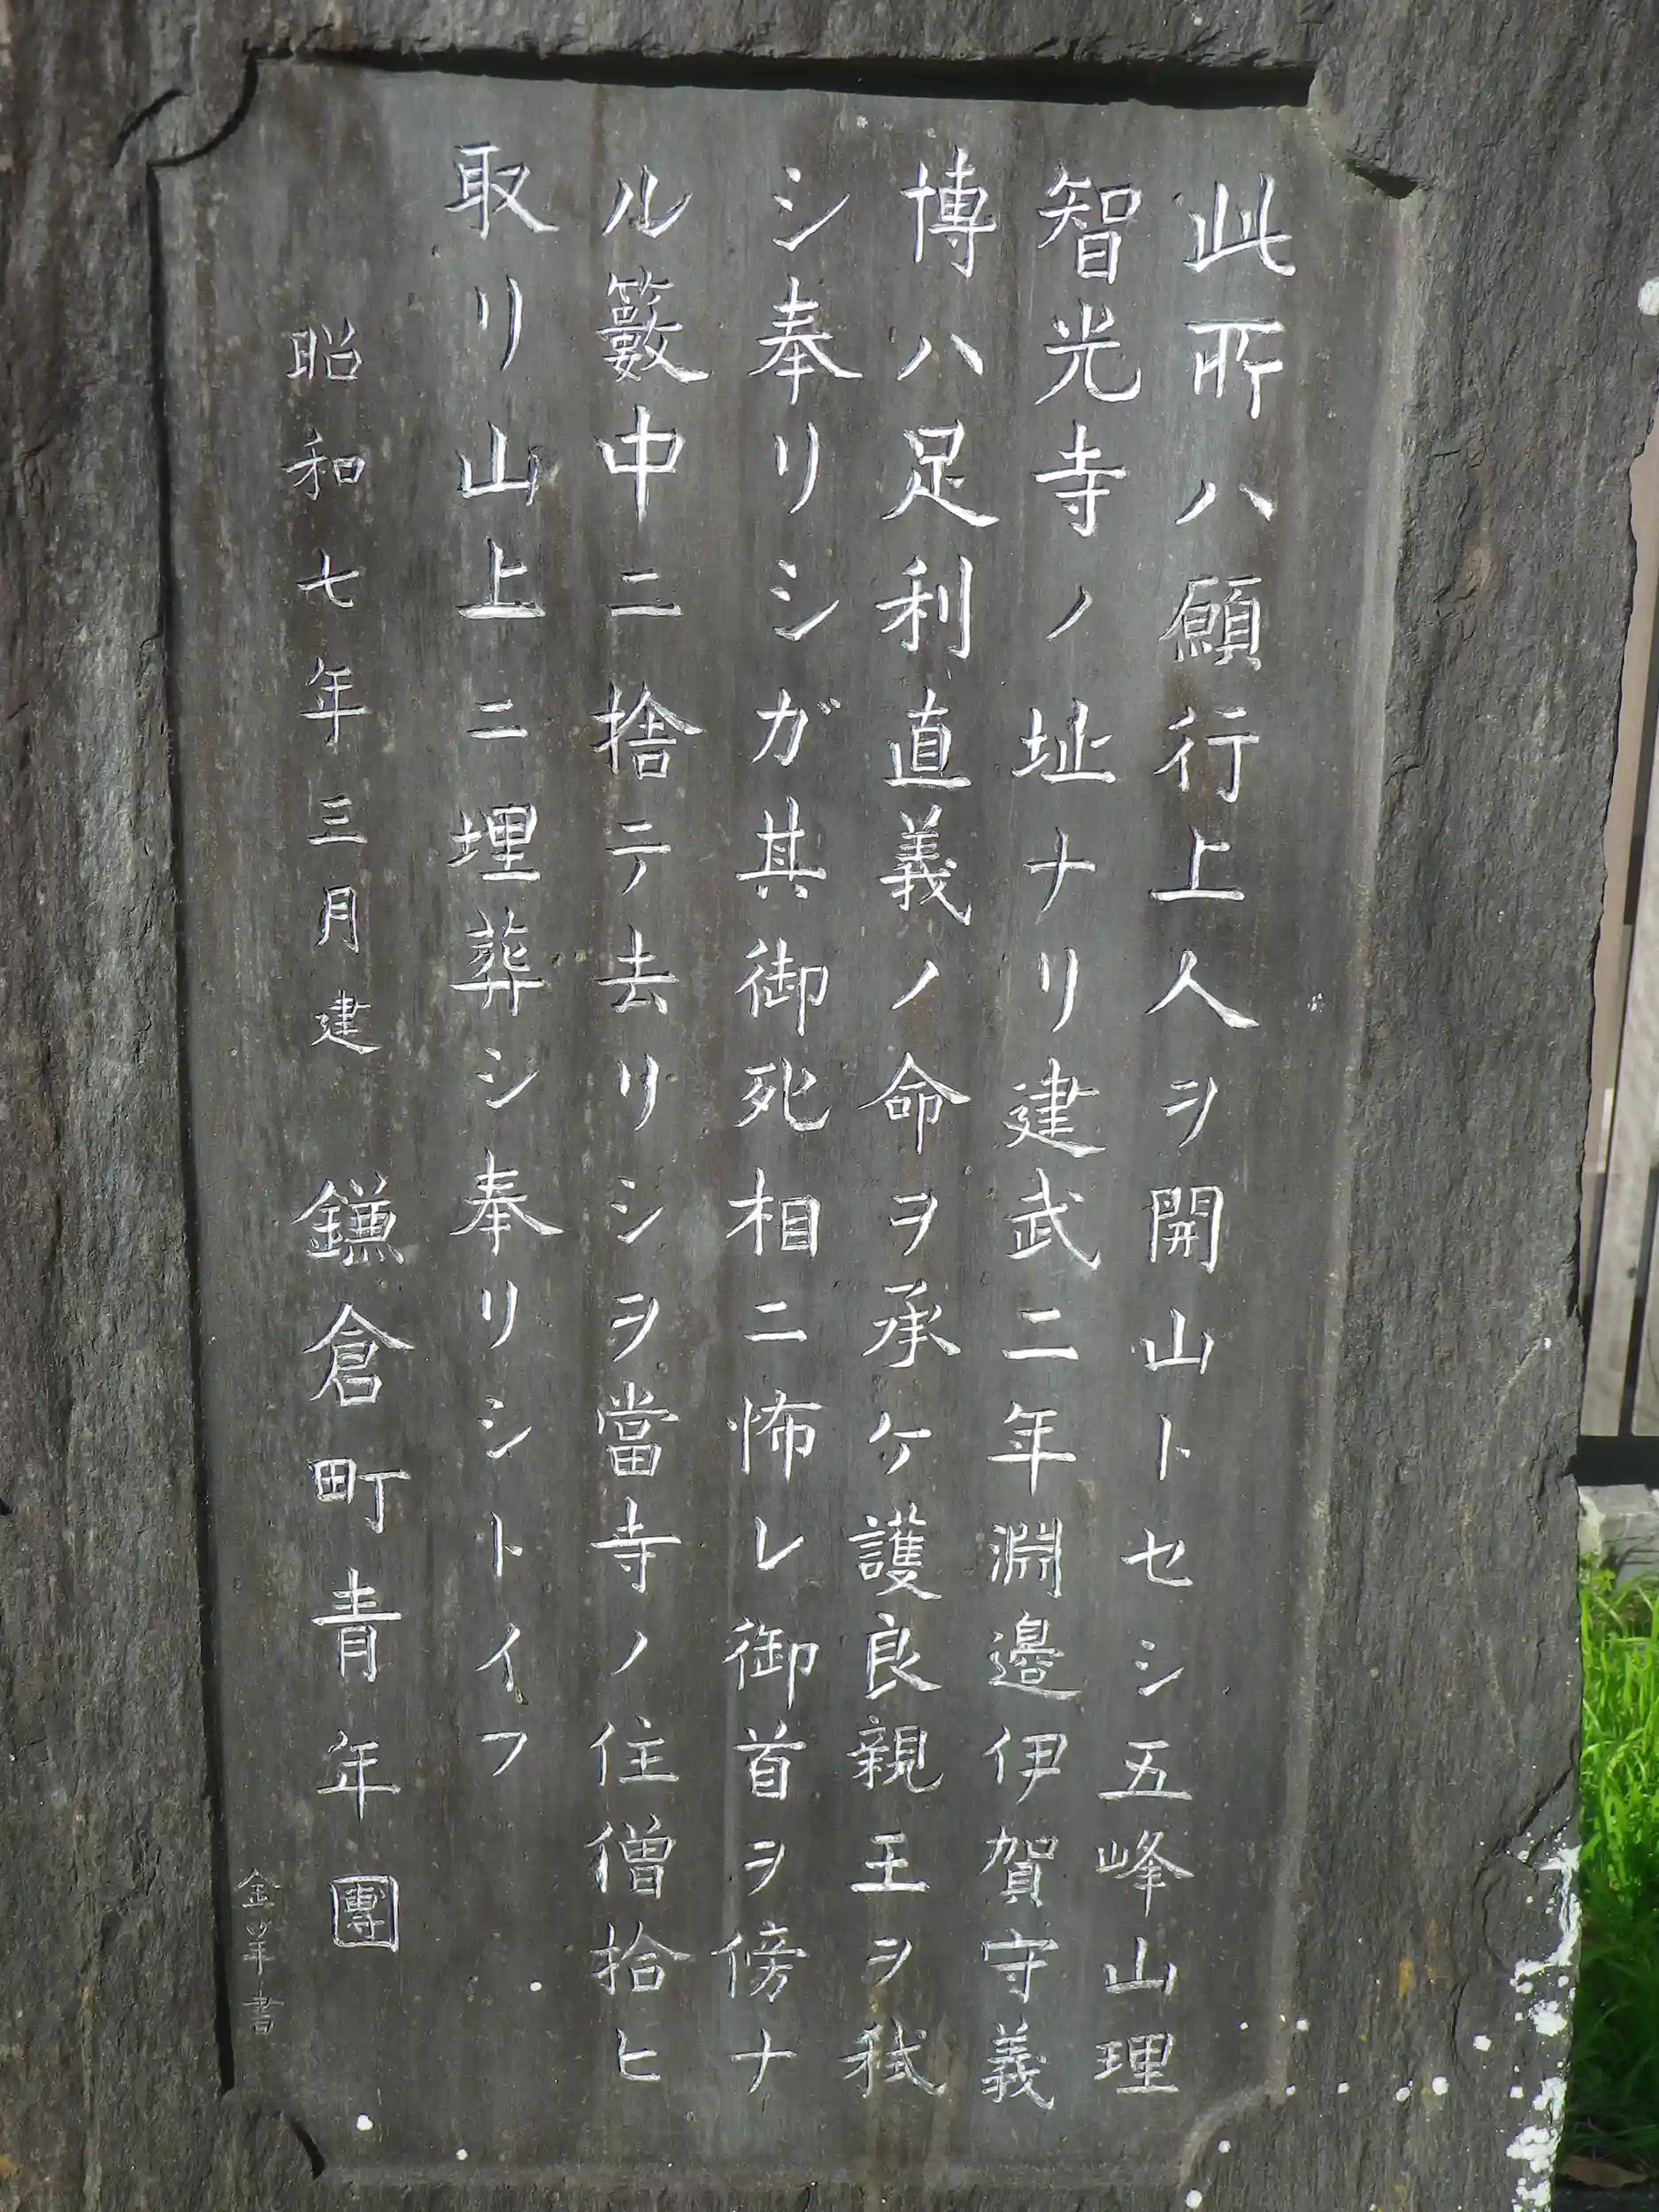 此所ハ願行上人ヲ開山トセシ五峰山理
智光寺ノ址ナリ建武二年淵邉伊賀守義
博ハ足利直義ノ命ヲ承ケ護良親王ヲ弑
シ奉リシガ其御死相ニ怖レ御首ヲ傍ナ
ル籔中ニ捨テ去リシヲ當寺ノ住僧拾ヒ
取リ山上ニ埋葬シ奉リシトイフ
昭和七年三月建 鎌倉町青年團
書